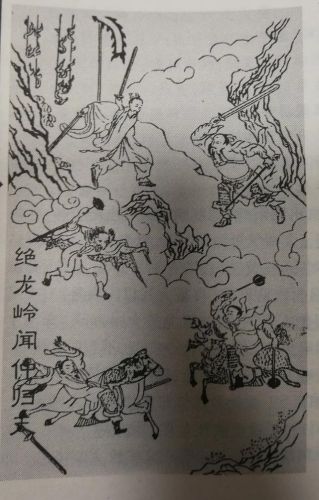 绝龙岭闻仲归天